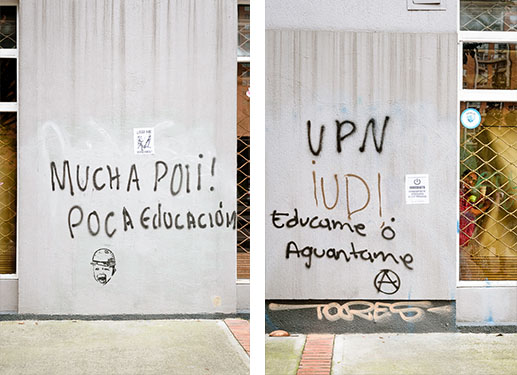 MUCHA POLI!
POCA EDUCACIÓN
UPN
iUD!
Educame ó
Aguantame
A
TORES